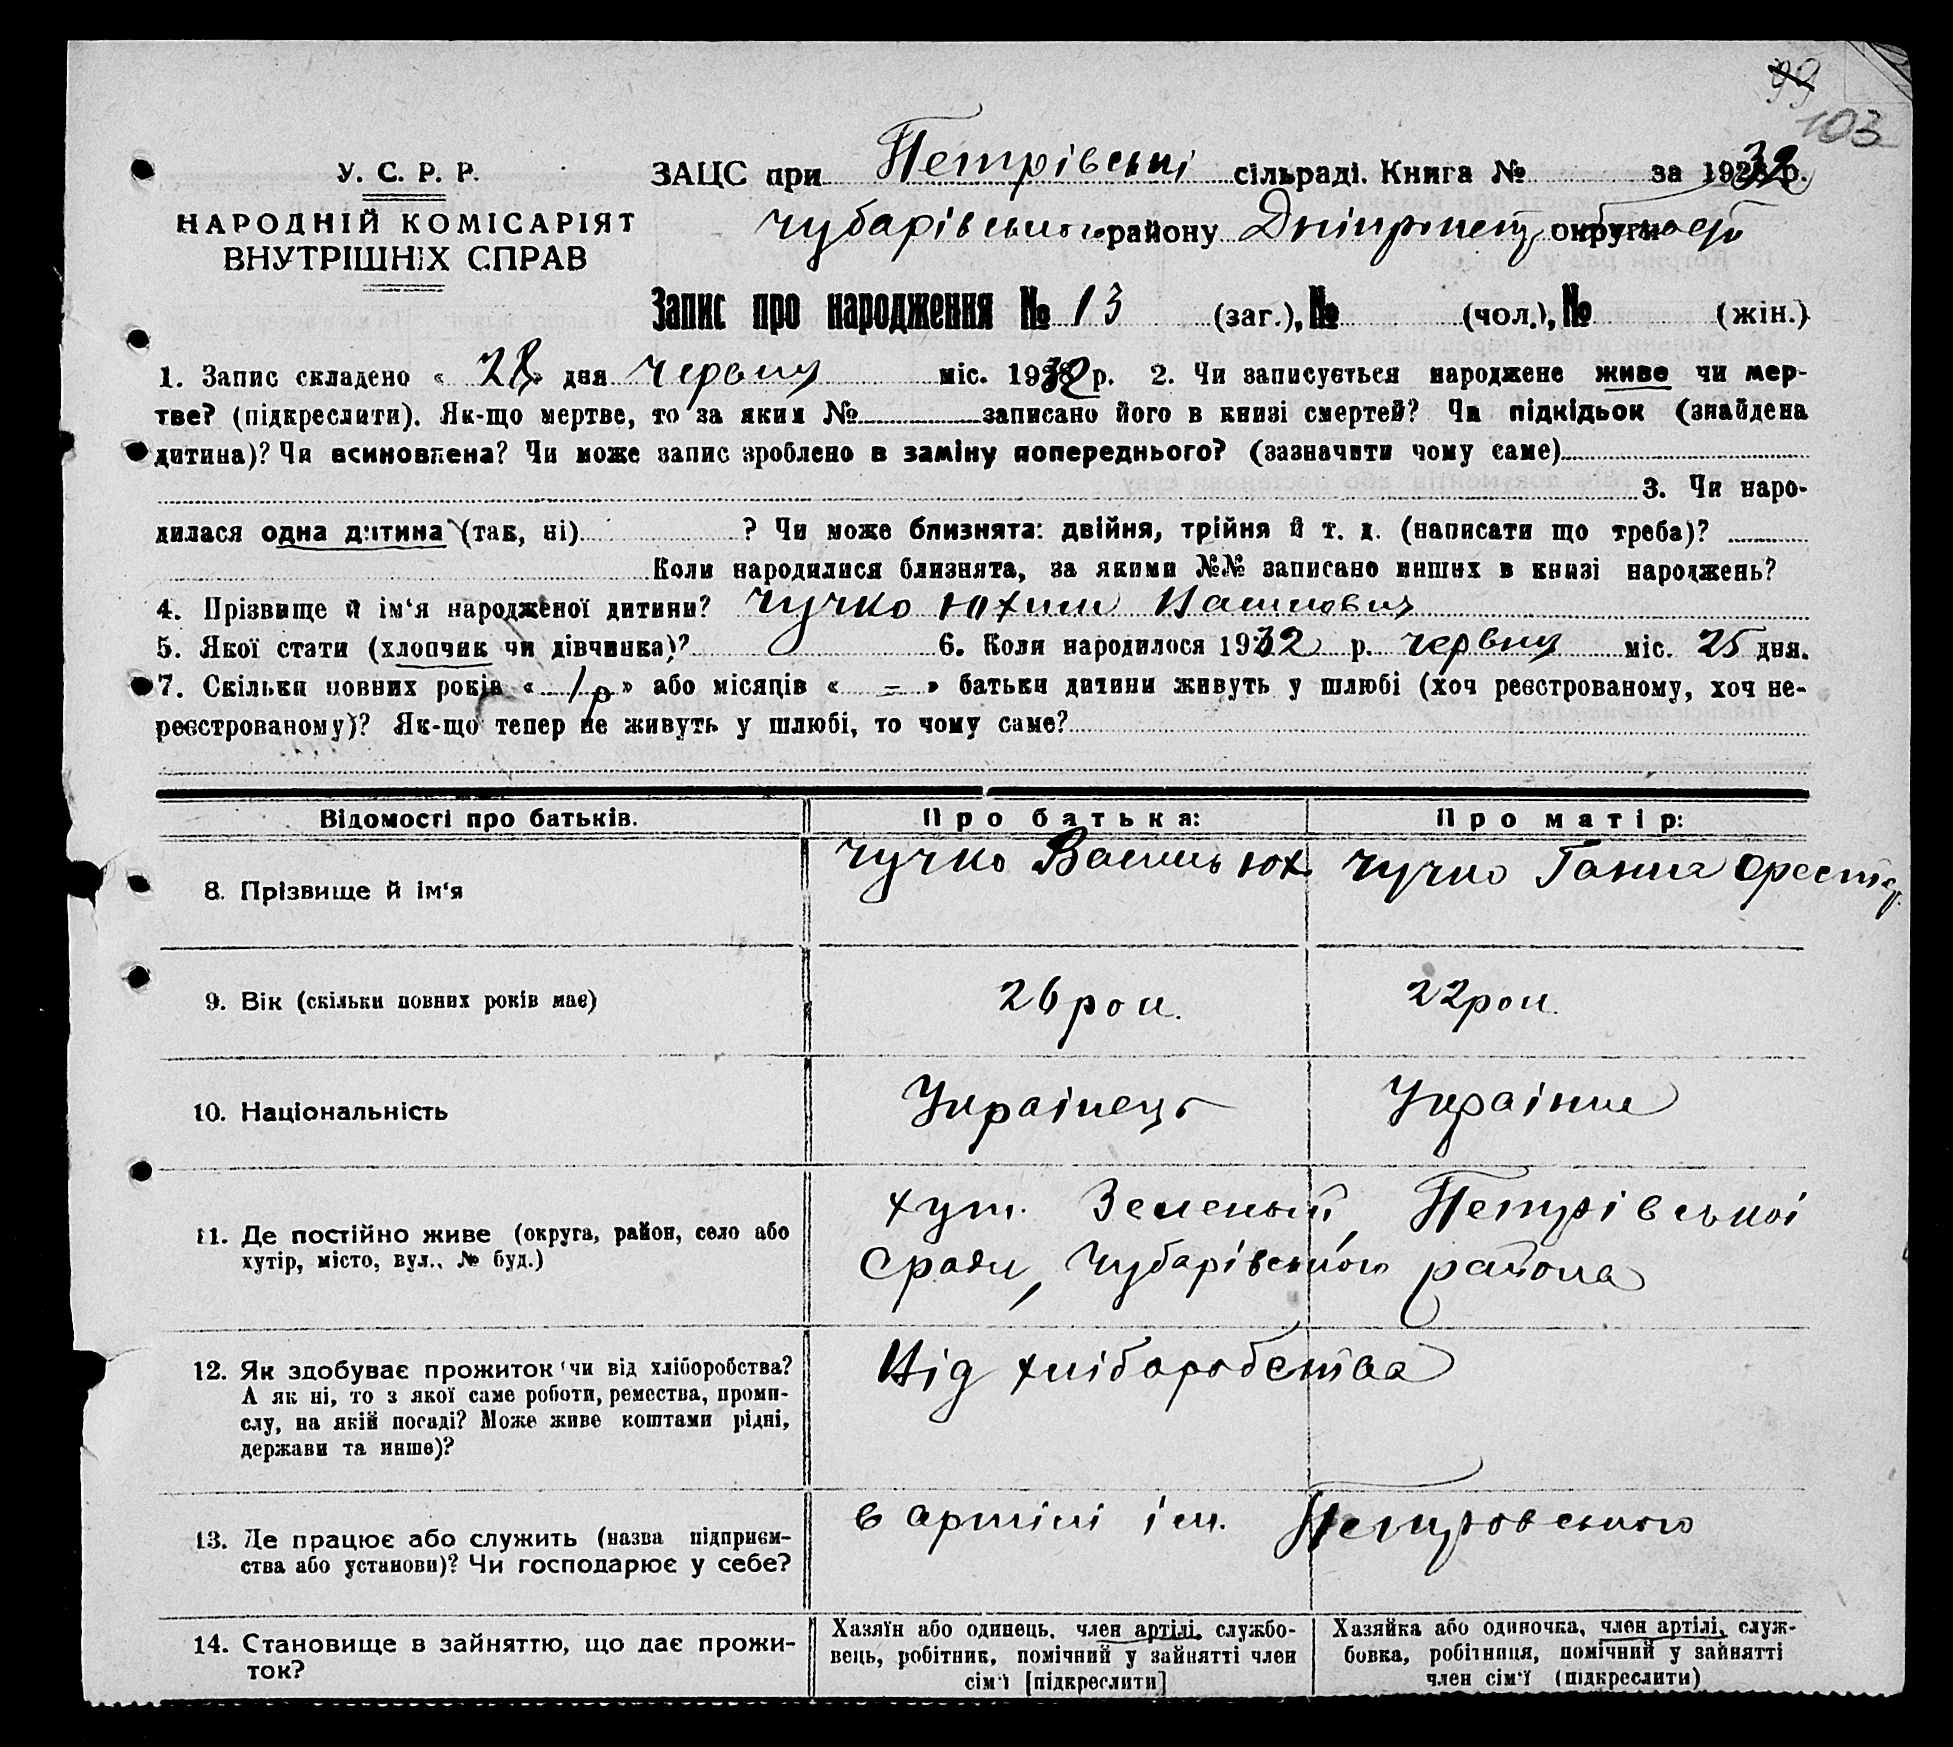 99
103
У. С. Р. Р.
НАРОДНІЙ КОМІСАРІЯТ
ВНУТРІШНІХ СПРАВ
ЗАЦС при Петрівські сільраді. Книга № за 1932 р.
Чубарівського району Дніпропет. округи
Запис про народження № 13 (заг.), № (чол.), № (жін.)
1. Запис складено « 28 » дня червня міс. 1932 р. 2. Чи записується народжене живе чи мер-
тве? (підкреслити). Як-що мертве, то за яким № записано його в книзі смертей? Чи підкідьок (знайдена
дитина)? Чи всиновлена? Чи може запис зроблено в заміну попереднього? (зазначити чому саме)
3. Чи наро-
дилася одна дитина (так, ні) ? Чи може близнята: двійня, трійня й т. д. (написати що треба)?
Коли народилися близнята, за якими №№ записано инших в книзі народжень?
4. Прізвище й ім‘я народженої дитини? Чучко Юхим Васильович
5. Якої стати (хлопчик чи дівчинка)? 6. Коли народилося 1932 р. червня міс. 25 дня.
7. Скільки повних років « 1 р » або місяців « – » батьки дитини живуть у шлюбі (хоч реєстрованому, хоч не-
реєстрованому)? Як-що тепер не живуть у шлюбі, то чому саме?
Відомості про батьків. Про батька: Про матір:
8. Прізвище й ім‘я Чучко Василь Юх. Чучко Ганна Орест.
9. Вік (скільки повних років має) 26 рок. 22 рок.
10. Національність Українець Українка
11. Де постійно живе (округа, район, село або
хутір, місто, вул., № буд.)
хут. Зеленый, Петрівської
с/ради, Чубарівського района
12. Як здобуває прожиток чи від хліборобства?
А як ні, то з якої саме роботи, ремества, проми-
слу, на якій посаді? Може живе коштами рідні,
держави та инше)?
Від хліборобства
13. Де працює або служить (назва підприєм-
ства або установи)? Чи господарює у себе?
в артілі ім. Петровського
14. Становище в зайняттю, що дає прожи-
ток?
Хазяїн або одинець, член артілі, службо-
вець, робітник, помічний у зайнятті член
сім‘ї [підкреслити]
Хазяйка або одиночка, член артілі, служ-
бовка, робітниця, помічний у зайнятті
член сім‘ї (підкреслити)